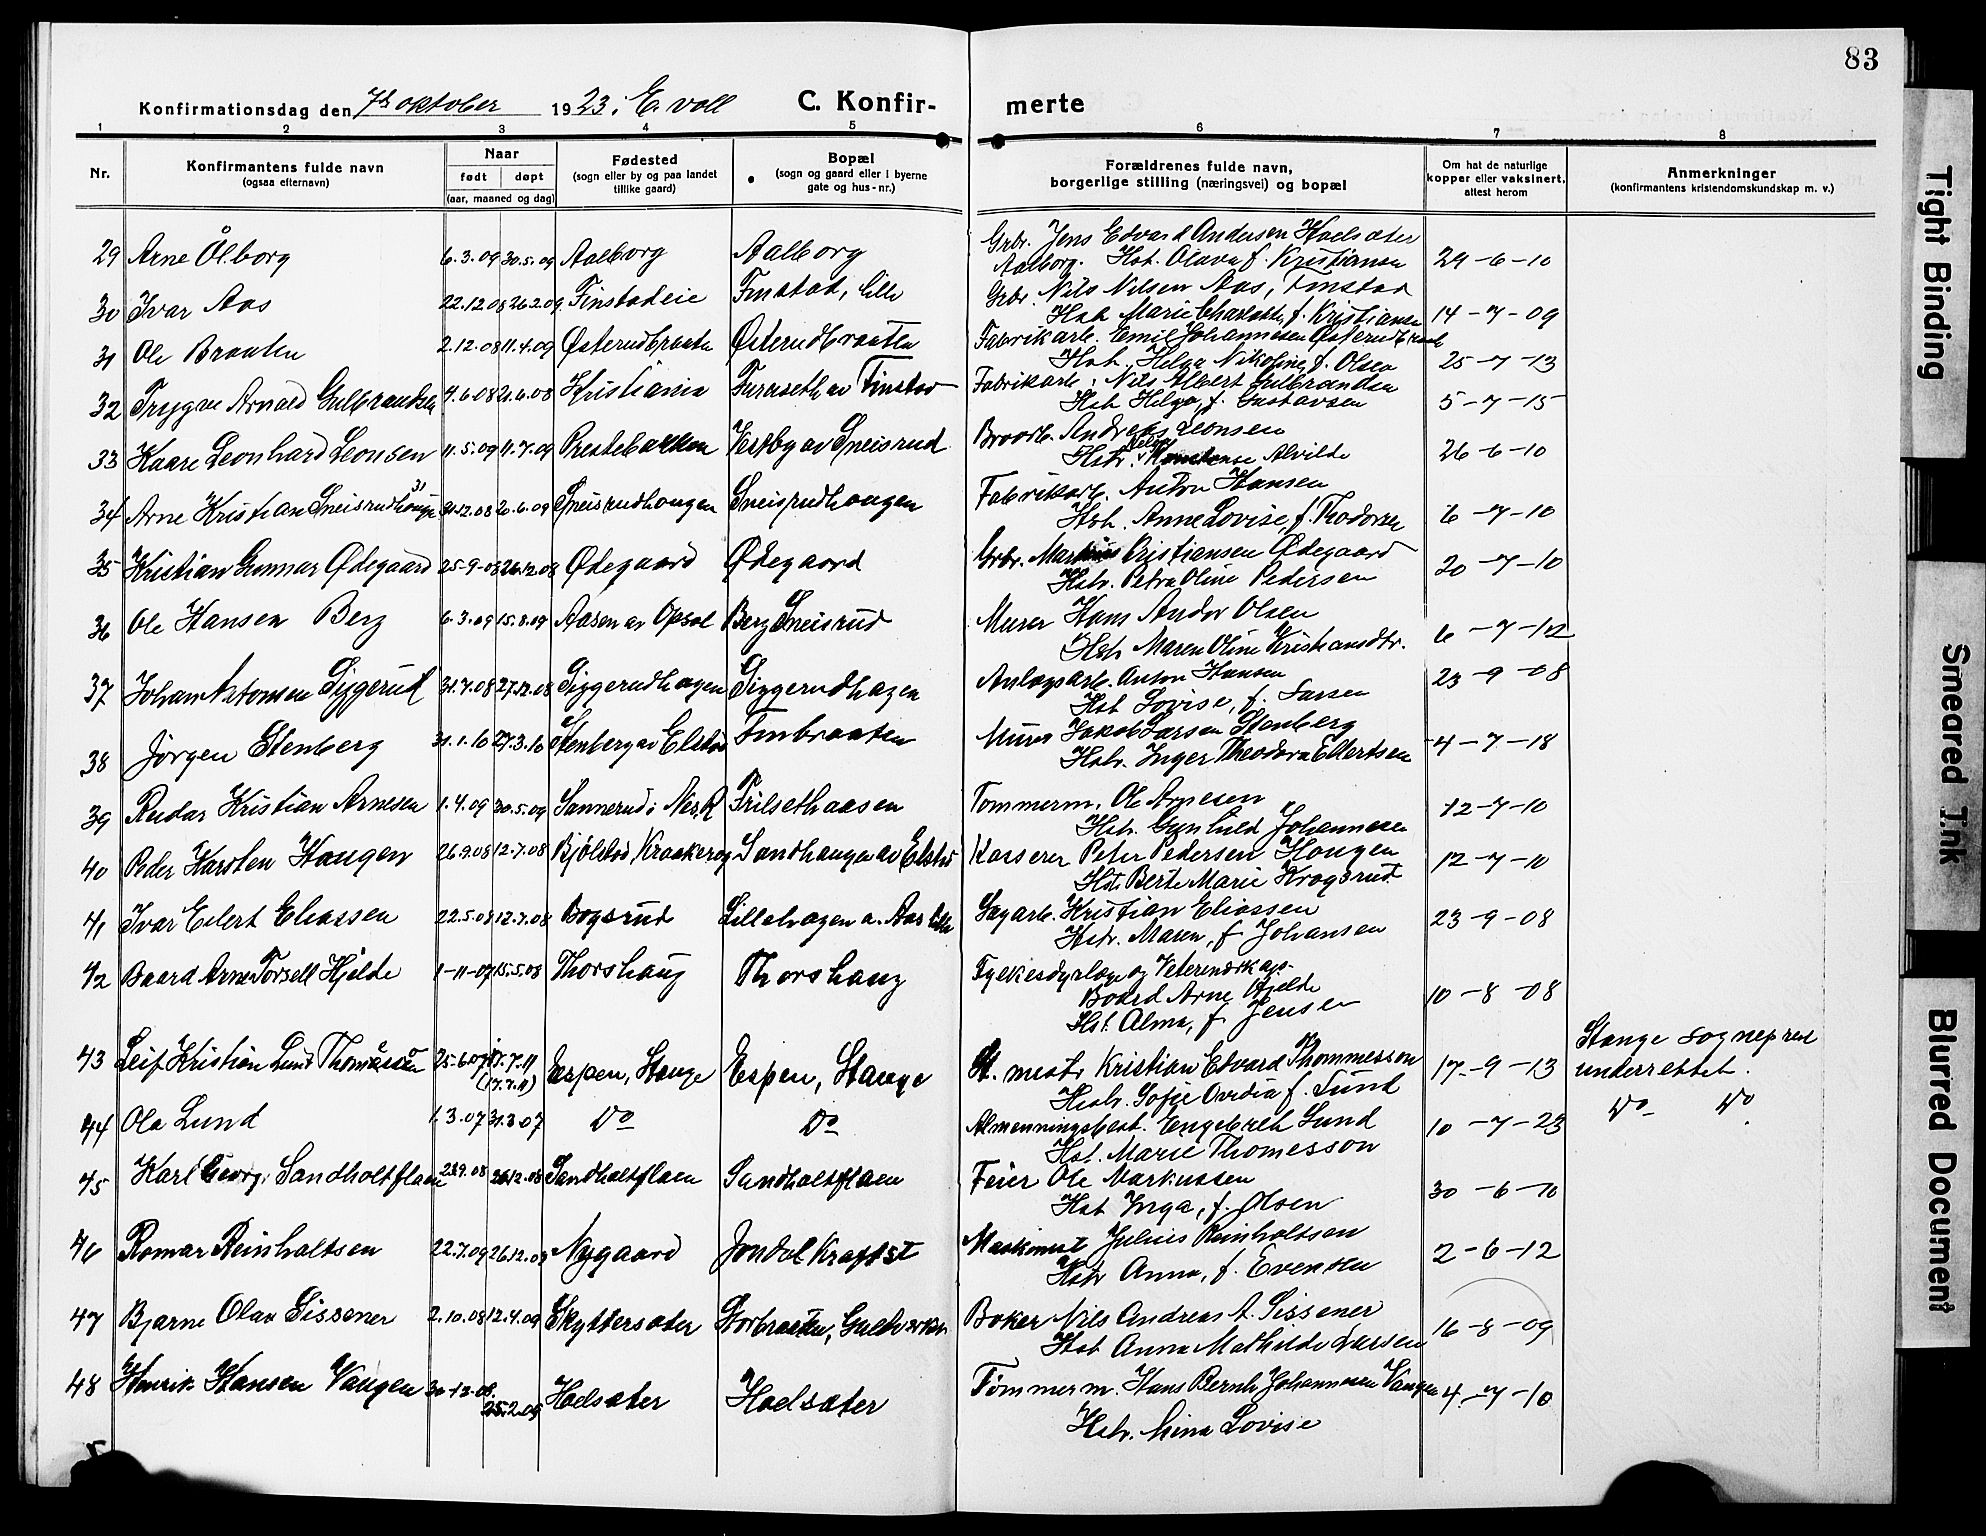 83
Konfirmationsdag den 7de oktober 1923 i E. voll C. Konfir- merte
1 2 3 4 5 6 7 8
Nr. Konfirmantens fulde navn (ogsaa efternavn) Naar født døpt (aar, maaned og dag) Fødested (sogn eller by og paa landet tillike gaard) Bopæl (sogn og gaard eller i byerne gate og hus-nr.) Forældrenes fulde navn, borgerlige stilling (næringsvei) og bopæl Om hat de naturlige kopper eller vaksinert, attest herom Anmerkninger (konfirmantens kristendomskundskap m. v.)
29 Arne Ølborg 6.3.09 30.5.09 Aalborg Aalborg Grbr. Jens Edvard Andersen Hoelsæter
Aalborg. Hst. Olava f. Kristiansen 29-6-10
30 Ivar Aas 22.12.08 26.2.09 Finstadeie Finstad, lille Grbr. Nils Nilsen Aas, Finstad
Hst Marie Charlotte f. Kristiansen 14-7-09
31 Ole Braaten 2.12.08 11.4.09 Østerudbraaten Østerudbraaten Fabrikarb. Emil Johannesen Østerudbraat
Hst. Helga Nikoline f. Olsen 25-7-13
32 Trygve Arnold Gulbrandsen 4.6.08 21.6.08 Kristiania Furuseth av Finstad Fabrikarb. Nils Albert Gulbrandsen
Hst Helga, f. Gustavsen 5-7-15
33 Kaare Leonhard Leonsen 11.5.09 11.7.09 Prestebakken Vestby av Sneisrud Broarb. Andreas Leonsen
Hstr. Alvilde 26-6-10
34 Arne Kristian Sneisrudhaugen 31.12.08 20.6.09 Sneisrudhaugen Sneisrudhaugen Fabrikarb. Anton Hansen
Hst. Anne Lovise, f. Thodorsen 6-7-10
35 Kristian Gunnar Ødegaard 25-9-08 26.12.08 Ødegaard Ødegaard Grbr. Martinus Kristiansen Ødegaard
Hstr. Petra Oline Pedersen 20-7-10
36 Ole Hansen Berg 6.3.09 15.8.09 Aasen av Opsal Berg Sneisrud Murer Hans Andor Olsen
Hstr Maren Oline Kristiansdtr. 6-7-12
37 Johan Antonsen Siggerud 31.7.08 27.12.08 Siggerudhagen Siggerudhagen Anlægsarb. Anton Hansen
Hst Lovise, f. Larsen 23-9-08
38 Jørgen Stenberg 31.1.10 27.3.10 Stenberg av Elstad Finbraaten Murer Jakob Larsen Stenberg
Hstr. Inger Theodora Ellertsen 4-7-18
39 Reidar Kristian Arnesen 1.4.09 30.5.09 Sannerud i Nes, R Trilsethaasen Tømmerm. Ole Arnesen
Hstr. Gunhild Johannesen 12-7-10
40 Peder Karsten Haugen 26.9.08 12.7.08 Bjølstad Kraakerøy Sandhaugen av Elstad Kasserer Peter Pedersen Haugen
Hst. Berte Marie Krogsrud 12-7-10
41 Ivar Eilert Eliassen 22.5.08 12.7.08 Bogsrud Lillehagen a. Aas lille Sagarb. Kristian Eliassen
Hstr. Maren, f Johansen 23-9-08
42 Baard Arne Torsell Hjelde 1-11-07 15.5.08 Thorshaug Thorshaug Fylkesdyrlæge og Veterinærkap.
Baard Arne Hjelde
Hst. Alma, f. Jensen 10-8-08
43 Leif Kristian Lund Thomassen 25.6.07 17.7.11 (17.7.11) Espen, Stange Espen, Stange St. mestr Kristian Edvard Thommesson
Hstr. Sofie Ovidia f. Lund 17-9-13 Stange sogneprest
underrettet.
44 Ola Lund 1.3.07 31.3.07 Do Do Almenningsbest. Engebreth Lund
Hst. Marie Thomesson 10-7-23 Do Do
45 Karl Georg Sandholtflaen 23.9.08 26.12.08 Sandholtflaen Sandholtflaen Feier Ole Markussen
Hst Inga, f. Olsen 30-6-10
46 Romar Reinholtsen 22.7.09 26.12.09 Nygaard Jondal Kraftst Maskinist Julius Reinholtsen
Hstr Anna, f. Evensen 2-6-12
47 Bjarne Olav Sissener 2.10.08 12.4.09 Skyttersæter Storbraaten, Guldverket Baker Nils Andreas A. Sissener
Hst Anna Mathilde Larsen 16-8-09
48 Henrik Hansen Vangen 30-12-08. 25.2.09 Hoelsæter Hoelsæter Tømmerm. Hans Bernh Johannesen Vangen
Hstr. Mina Lovise 4-7-10
Tight Binding
Smeared Ink
Blurred Document